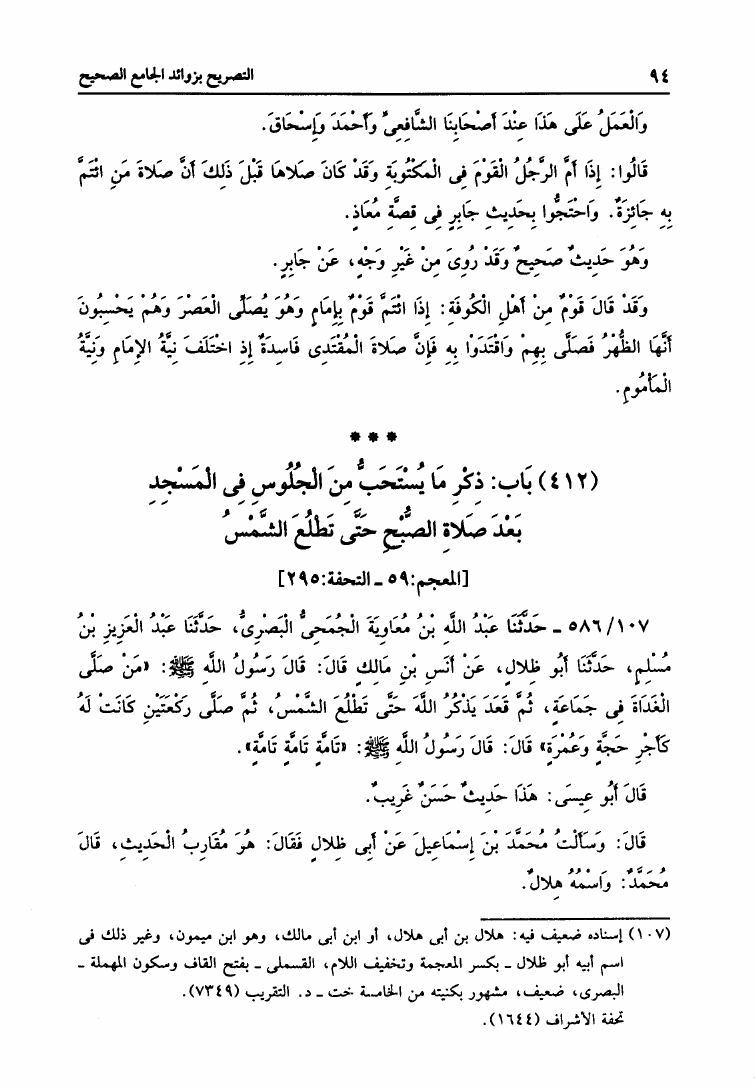 ٩٤
التصريح بزوائد الجامع الصحيح
وَالْعَمَلُ عَلَى هَذَا عِنْدَ أَصْحَابِنَا الشَّافِعِيِّ وَأَحْمَدَ وَإِسْحَاقَ.
قَالُوا: إِذَا أَمَّ الرَّجُلُ الْقَوْمَ فِى الْمَكْتُوبَةِ وَقَدْ كَانَ صَلاهَا قَبْلَ ذَلِكَ أَنَّ صَلاةَ مَنِ ائْتَمَّ
بِهِ جَائِزَةٌ. وَاحْتَجُّوا بِحَدِيثِ جَابِرٍ فِى قِصَّةِ مُعَاذٍ.
وَهُوَ حَدِيثٌ صَحِيحٌ وَقَدْ رُوِىَ مِنْ غَيْرِ وَجْهٍ، عَنْ جَابِرٍ.
وَقَدْ قَالَ قَوْمٌ مِنْ أَهْلِ الْكُوفَةِ: إِذَا ائْتَمَّ قَوْمٌ بِإِمَامٍ وَهُوَ يُصَلِّى الْعَصْرَ وَهُمْ يَحْسِبُونَ
أَنَّهَا الظُّهْرُ فَصَلَّى بِهِمْ وَاقْتَدَوْا بِهِ فَإِنَّ صَلاةَ الْمُقْتَدِى فَاسِدَةٌ إِذِ اخْتَلَفَ نِيَّةُ الإِمَامِ وَنِيَّةُ
الْمَأْمُومِ.
***
(٤١٢) بَاب: ذِكْرِ مَا يُسْتَحَبُّ مِنَ الْجُلُوسِ فِى الْمَسْجِدِ
بَعْدَ صَلاةِ الصُّبْحِ حَتَّى تَطْلُعَ الشَّمْسُ
[المعجم:٥٩ ـ التحفة:٢٩٥]
٥٨٦/١٠٧ ـ حَدَّثَنَا عَبْدُ اللَّهِ بْنُ مُعَاوِيَةَ الْجُمَحِىُّ الْبَصْرِىُّ، حَدَّثَنَا عَبْدُ الْعَزِيزِ بْنُ
مُسْلِمٍ، حَدَّثَنَا أَبُو ظِلالٍ، عَنْ أَنَسِ بْنِ مَالِكٍ قَالَ: قَالَ رَسُولُ اللَّهِ ﷺ: «مَنْ صَلَّى
الْغَدَاةَ فِى جَمَاعَةٍ، ثُمَّ قَعَدَ يَذْكُرُ اللَّهَ حَتَّى تَطْلُعَ الشَّمْسُ، ثُمَّ صَلَّى رَكْعَتَيْنِ كَانَتْ لَهُ
كَأَجْرِ حَجَّةٍ وَعُمْرَةٍ» قَالَ: قَالَ رَسُولُ اللَّهِ ﷺ: «تَامَّةٍ تَامَّةٍ تَامَّةٍ».
قَالَ أَبُو عِيسَى: هَذَا حَدِيثٌ حَسَنٌ غَرِيبٌ.
قَالَ: وَسَأَلْتُ مُحَمَّدَ بْنَ إِسْمَاعِيلَ عَنْ أَبِى ظِلالٍ فَقَالَ: هُوَ مُقَارِبُ الْحَدِيثِ، قَالَ
مُحَمَّدٌ: وَاسْمُهُ هِلالٌ.
(١٠٧) إسناده ضعيف فيه: هلال بن أبى هلال، أو ابن أبى مالك، وهو ابن ميمون، وغير ذلك فى
اسم أبيه أبو ظلال ـ بكسر المعجمة وتخفيف اللام، القسملى ـ بفتح القاف وسكون المهملة ـ
البصرى، ضعيف، مشهور بكنيته من الخامسة خت ـ د. التقريب (٧٣٤٩).
تحفة الأشراف (١٦٤٤).